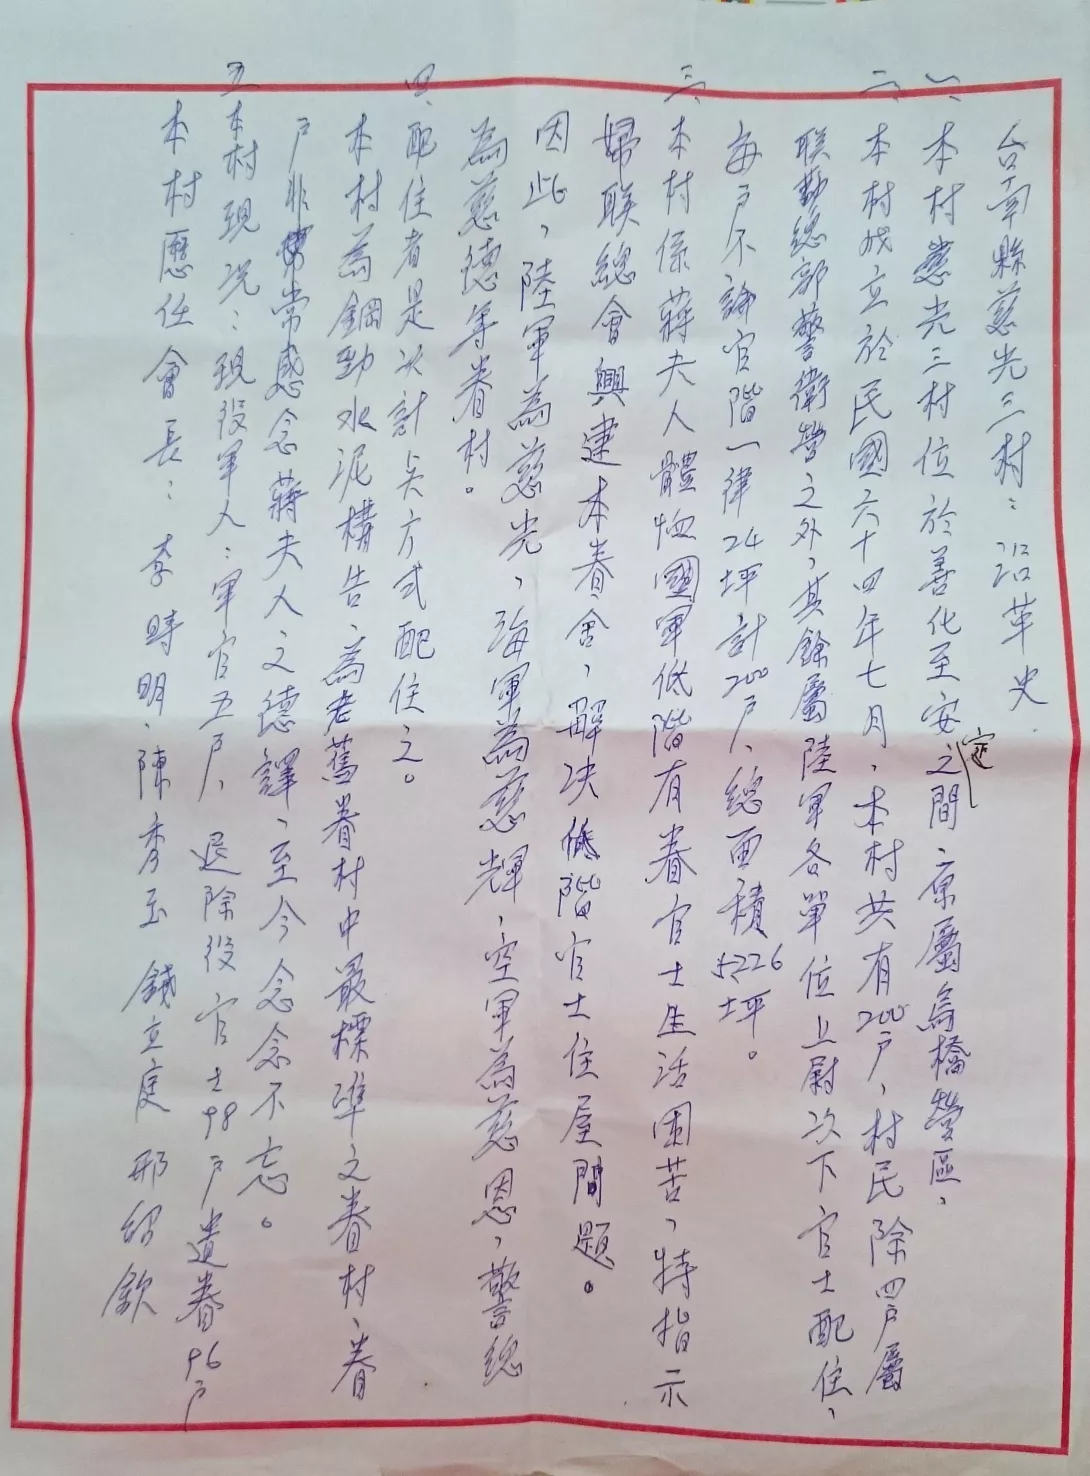 台南縣慈光三村：沿革史
一、本村慈光三村位於善化至安定之間、原屬烏橋營區，
二、本村成立於民國六十四年七月、本村共有200戶，村民除四戶屬
聯勤總部警衛營之外，其餘屬陸軍各單位上尉次下官士配住，
每戶不論官階一律24坪計200戶、總面積5226坪。
三、本村係蔣夫人體恤國軍低階有眷官士生活困苦，特指示
婦聯總會興建本眷舍，解決低階官士住屋問題。
因此，陸軍為慈光，海軍為慈輝，空軍為慈恩，警總
為慈德等眷村。
四、配住者是以計點方式配住之。
本村為鋼勁水泥構告、為老舊眷村中最標準之眷村、眷
戶非常感念蔣夫人之德譯、至今念念不忘。
五本村現況：現役軍人：軍官五戶、退除役官士98戶遺眷96戶
本村歷任會長：李時明、陳秀玉 錢立庭 邢紹欽